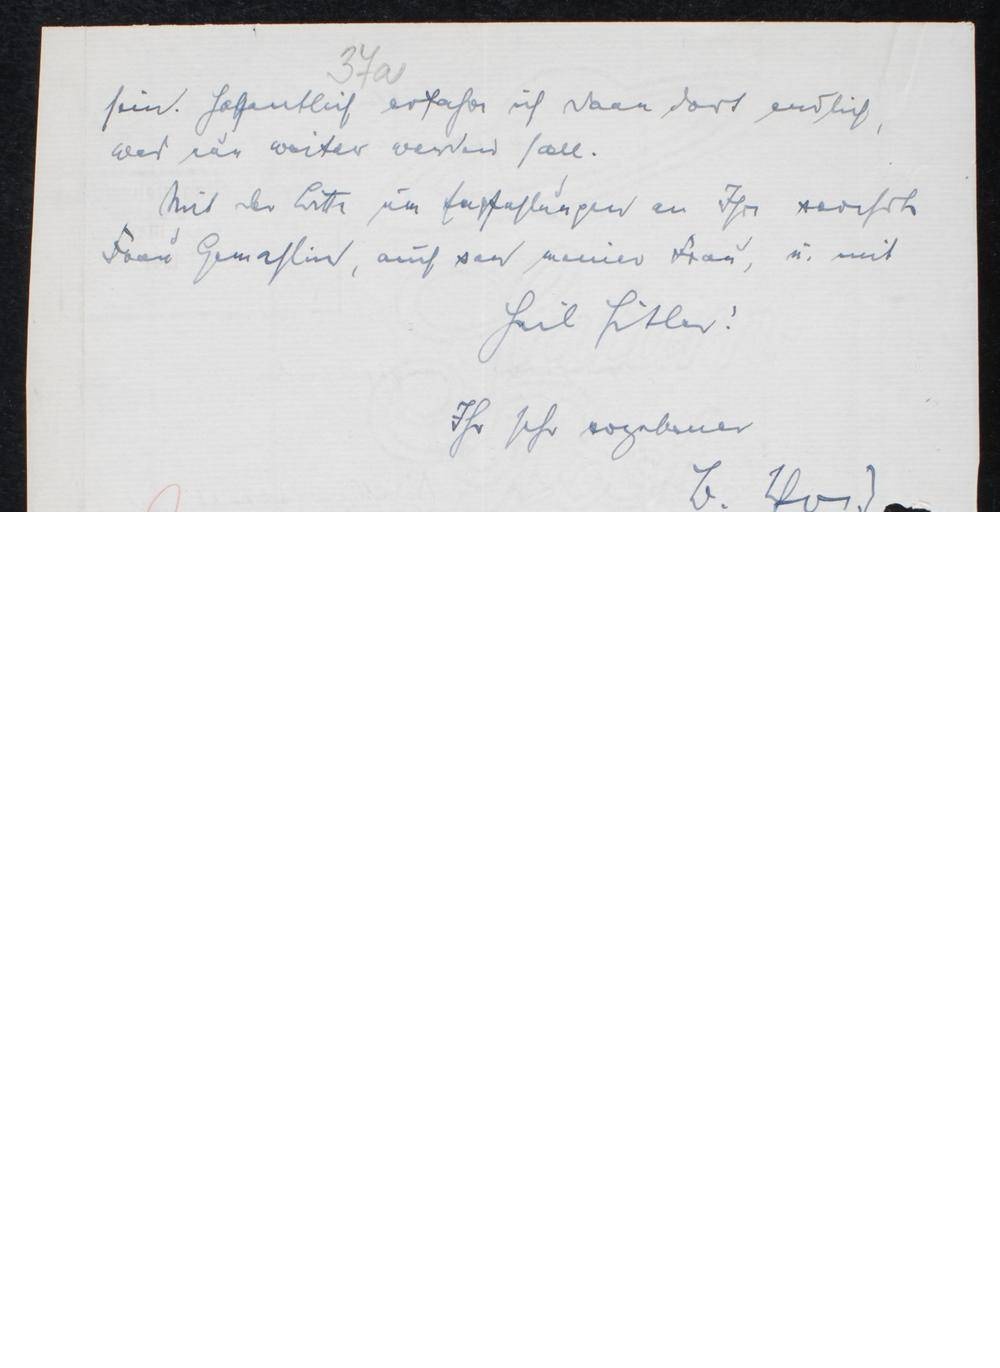 37a
sein. Hoffentlich erfahre ich dann dort endlich,
was nun weiter werden soll.
Mit der Bitte um Empfehlungen an Ihre verehrte
Frau Gemahlin, auch von meiner Frau, u. mit
Heil Hitler!
Ihr sehr ergebener